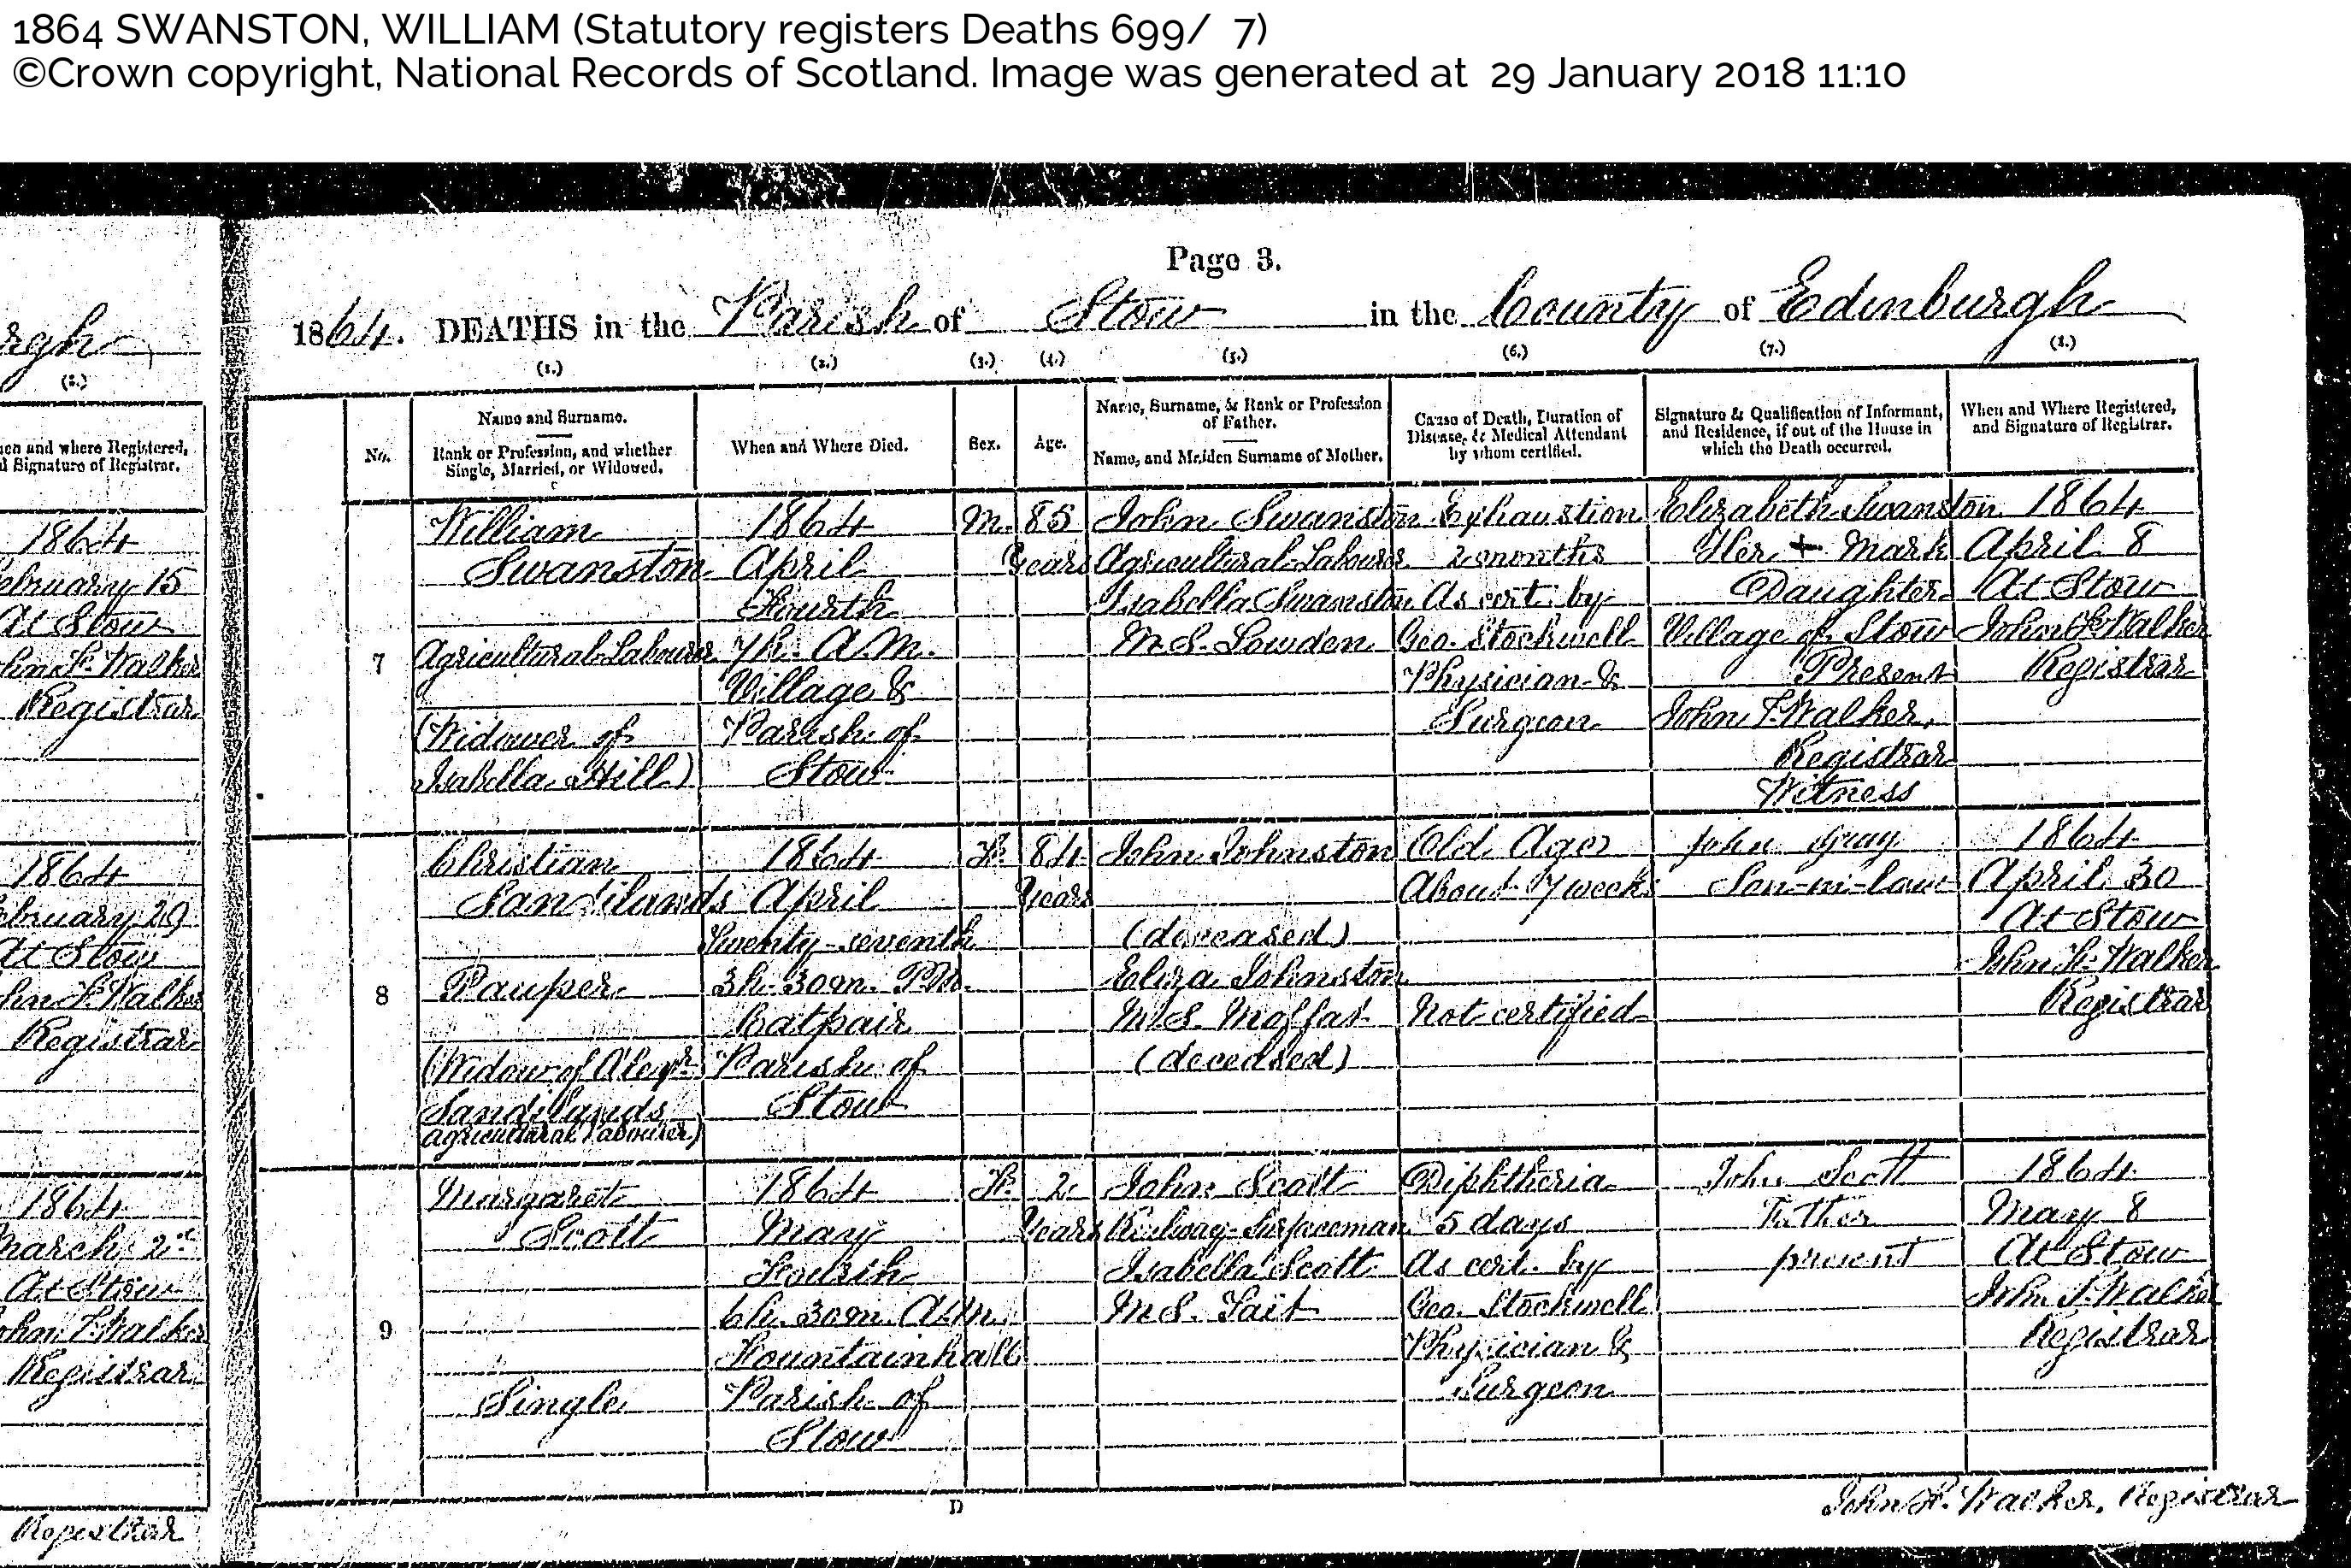 1864 SWANSTON, WILLIAM (Statutory registers Deaths 699/ 7)
©Crown copyright, National Records of Scotland. Image was generated at 29 January 2018 11:10
Page 3.
1864. DEATHS in the Parish of Stow in the County of Edinburgh
(1.) (2.) (3.) (4.) (5.) (6.) (7.) (8.)
No.
Name and Surname.
Rank or Profession, and whether
Single, Married, or Widowed.
When and Where Died.
Sex.
Age.
Name, Surname, & Rank or Profession
of Father.
Name, and Maiden Surname of Mother.
Cause of Death, Duration of
Disease, & Medical Attendant
by whom certified.
Signature & Qualification of Informant,
and Residence, if out of the House in
which the Death occurred.
When and Where Registered,
and Signature of Registrar.
7
William
Swanston
Agricultural Labourer
(Widower of
Isabella Hill)
1864
April
Fourth
7h. A.M.
Village &
Parish of
Stow
M.
85
Years
John Swanston
Agricultural Labourer
Isabella Swanston
M.S. Lowden
Exhaustion
2 months
As cert. by
Geo. Stockwell
Physician &
Surgeon
Elizabeth Swanston
Her + Mark
Daughter
Village of Stow
Present
John F. Walker,
Registrar
Witness
1864
April 8
At Stow
John F. Walker
Registrar
8
Christian
Sandilands
Pauper
(Widow of Alexr.
Sandilands
agricultural labourer)
1864
April
Twenty-seventh
3h. 30m. P.M.
Catpair
Parish of
Stow
F.
84
Years
John Johnston
(deceased)
Eliza Johnston
M.S. Moffat
(deceased)
Old Age
About 7 weeks
Not certified
John Gray
Son-in-law
1864
April 30
At Stow
John F. Walker
Registrar
9
Margaret
Scott
Single
1864
May
Fourth
6h. 30m. A.M.
Fountainhall
Parish of
Stow
F.
2
Years
John Scott
Railway Surfaceman
Isabella Scott
M.S. Tait
Diphtheria
5 days
As cert. by
Geo. Stockwell
Physician &
Surgeon
John Scott
Father
present
1864
May 8
At Stow
John F. Walker
Registrar
D
John F. Walker, Registrar
rgh
(8.)
en and where Registered,
d Signature of Registrar.
1864
ebruary 15
At Stow
ohn F. Walker
Registrar
1864
ebruary 29
At Stow
ohn F. Walker
Registrar
1864
March 2
At Stow
ohn F. Walker
Registrar
Registrar